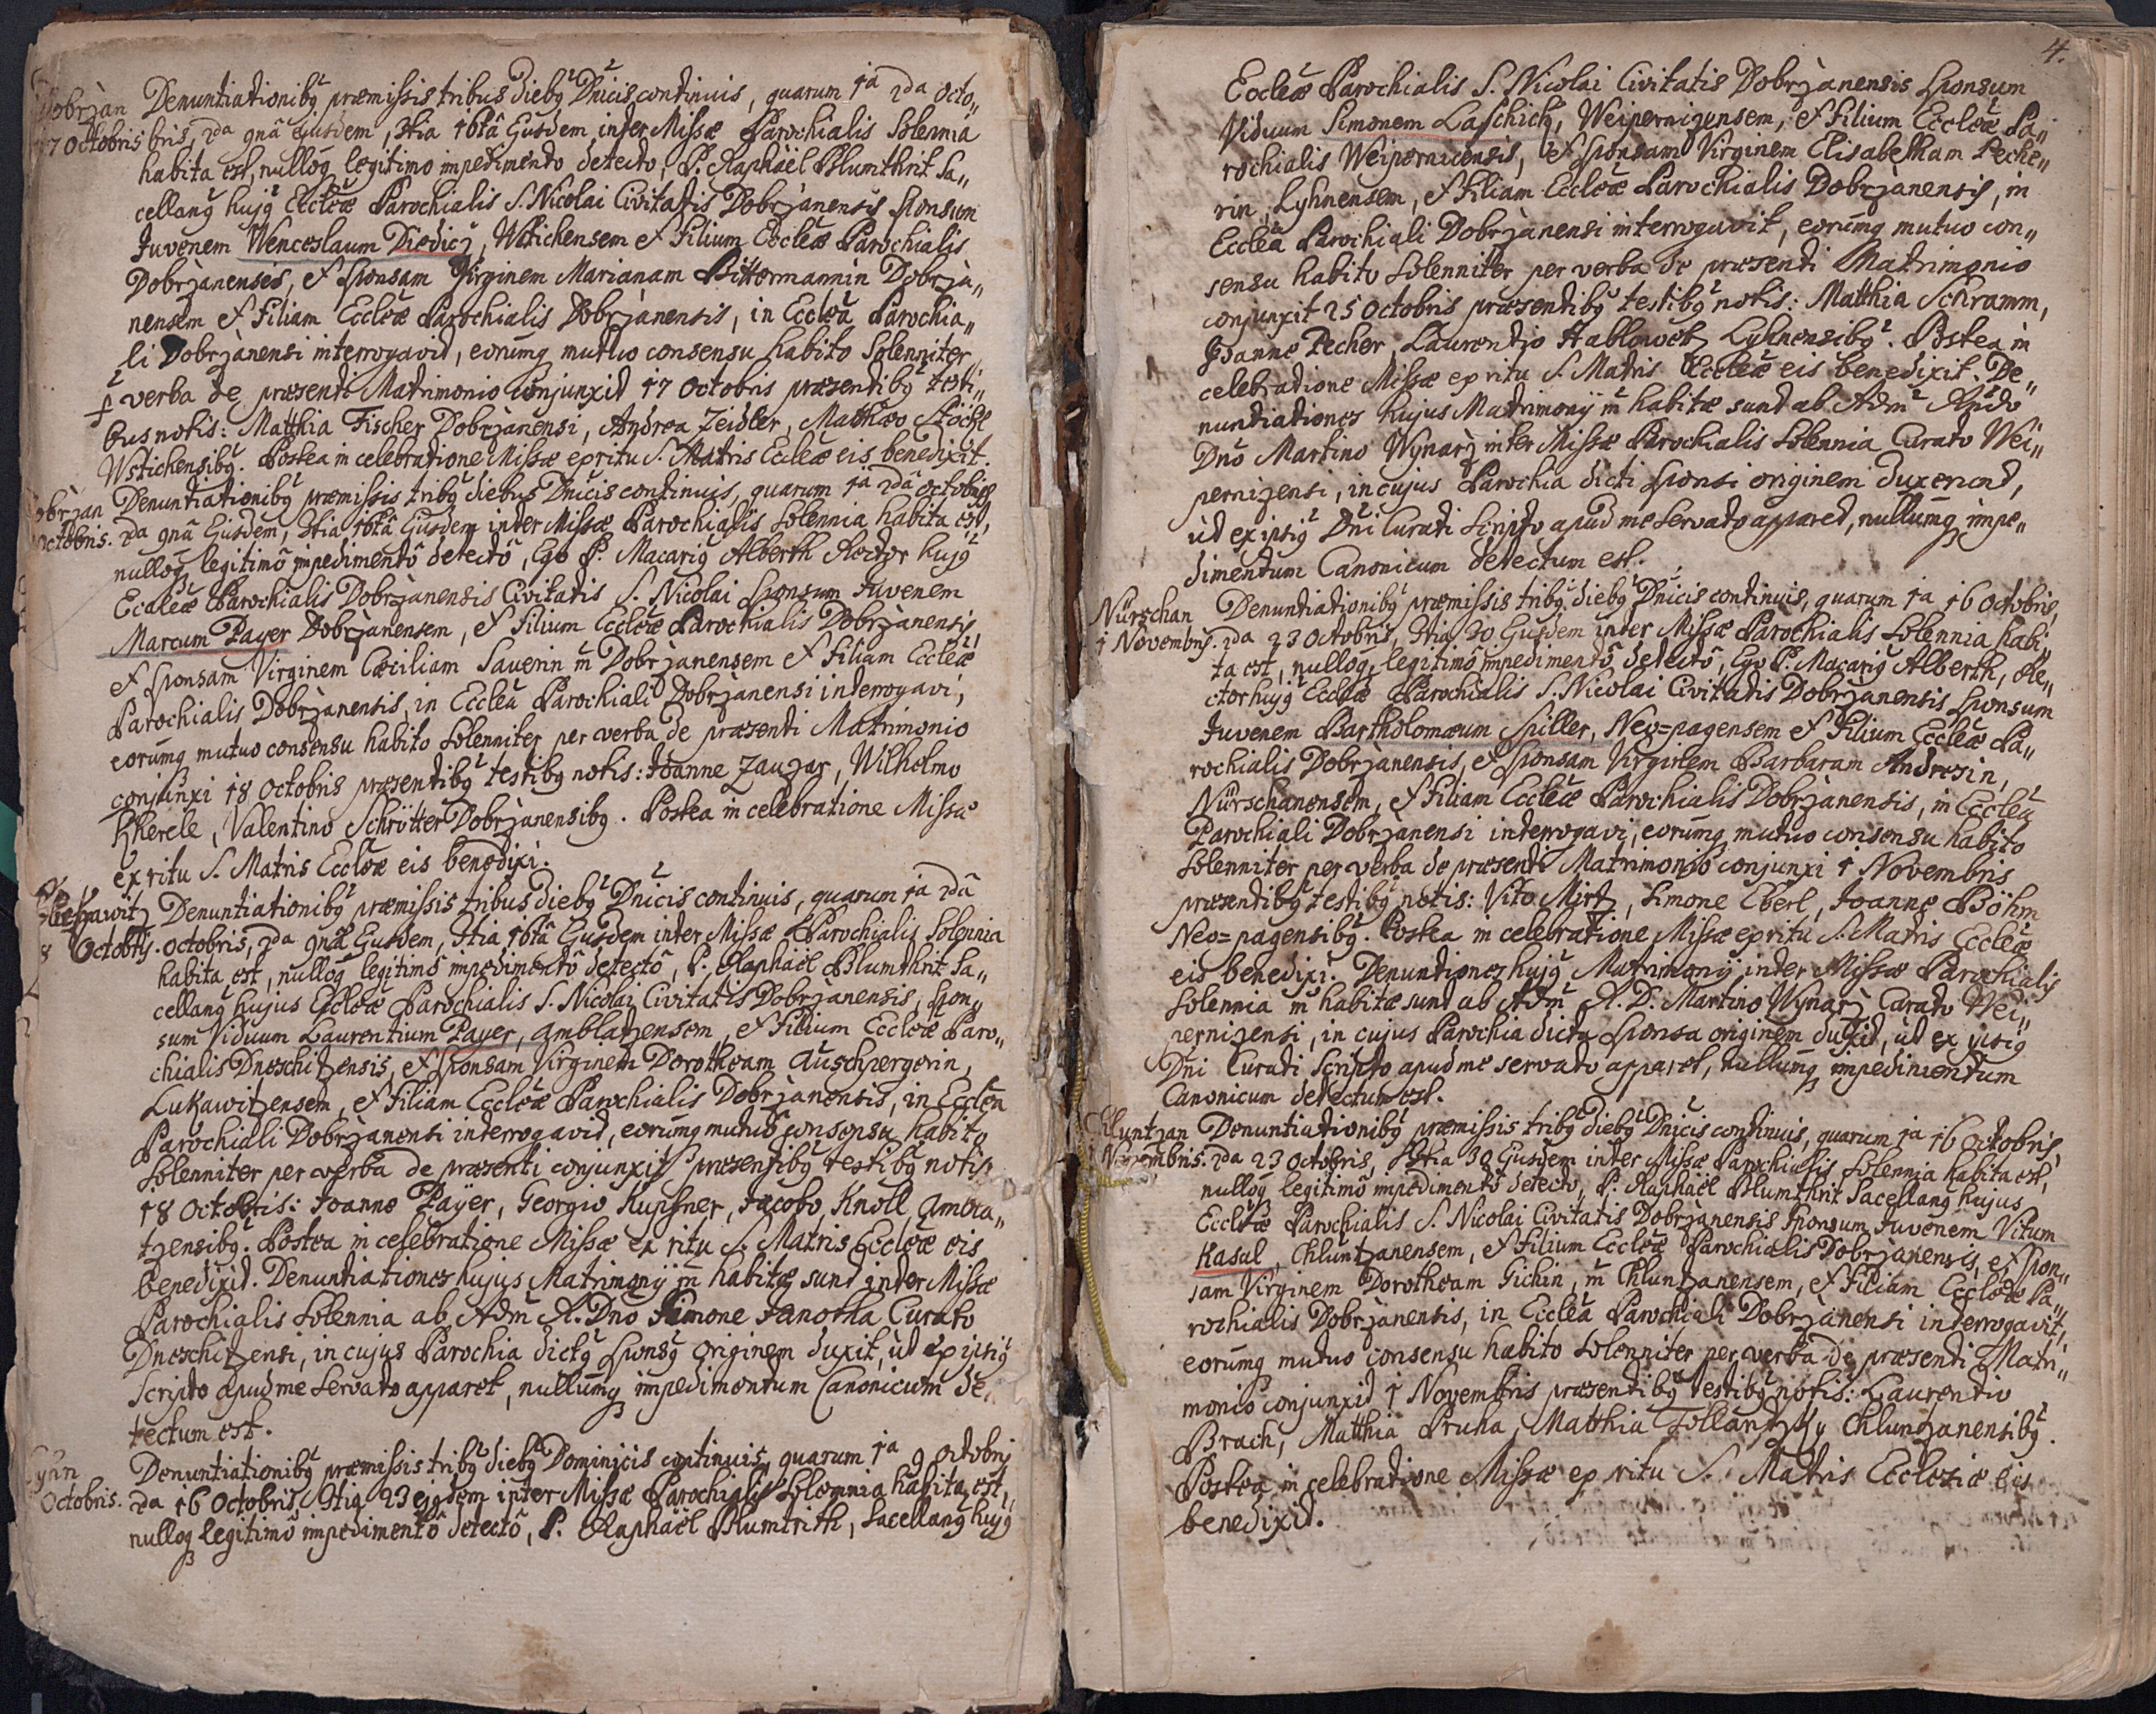 Dobrzan Denuntiationibq præmissis tribus diebq Dnicis continuis, quarum 1a 2da octo„
17 Octobris bris, 2da 9nâ ejusdem, 3tia 16tâ Ejusdem inter Missæ Parochialis Solemnia
habita est, nulloq legitimo impedimento detecto, P. Raphaël Blumthrit Sa„
cellanq hujq Eccleæ Parochialis S. Nicolai Civitatis Dobrzanensis Sponsum
Juvenem Wenceslaum Diedicz, Wstichensem et Filium Eccleæ Parochialis
Dobrzanenses, et Sponsam Virginem Marianam Bittermannin Dobrza„
nensem et Filiam Eccleæ Parochialis Dobrzanensis, in Ecclea Parochia„
li Dobrzanensi interrogavid, eorumq mutuo consensu habito Solenniter
p verba de præsenti Matrimonio Conjunxid 17 Octobris præsentibq testi„
bus notis: Matthia Fischer Dobrzanensi, Andrea Zeidler, Mathæo Stöckl
Wstichensibq. Postea in celebratione Missæ ex ritu S. Matris Eccleæ eis benedixit.
Dobrzan Denuntiationibq præmissis tribq diebus Dnicis continuis, quarum 1a 2dâ octobris
Octobris. 2da 9nâ Ejusdem, 3tia 16tâ Ejusdem inter Missæ Parochialis Solennia habita est,
nulloq legitimô impedimentô detectô, Ego P. Macariq Alberth Rector hujq
Eccleæ Parochialis Dobrzanensis Civitatis S. Nicolai Sponsum Juvenem
Marcum Payer Dobrzanensem, et Filium Eccleæ Parochialis Dobrzanensis,
et Sponsam Virginem Cæciliam Sauerin m Dobrzanensem et Filiam Eccleæ
Parochialis Dobrzanensis, in Ecclea Parochiali Dobrzanensi interrogavi,
eorumq mutuo consensu habito Solenniter per verba de præsenti Matrimonio
conjunxi 18 Octobris præsentibq testibq notis: Joanne Zauzar, Wilhelmo
Kherele, Valentino Schrötter Dobrzanensibq. Postea in celebratione Missæ
ex ritu S. Matris Eccleæ eis benedixi.
Denuntiationibq præmissis tribus diebq Dnicis continuis, quarum 1a 2dâ
8 Octobris. octobris, 2da 9nâ Ejusdem, 3tia 16tâ Ejusdem inter Missæ Parochialis Solennia
habita est, nulloq legitimô impedimentô detectô, P. Raphaël Blumthrit Sa„
cellanq hujus Eccleæ Parochialis S. Nicolai Civitatis Dobrzanensis, Spon„
sum Viduum Laurentium Payer, Amblatzensem, et Filium Eccleæ Paro„
chialis Dneschitzensis, et Sponsam Virginem Dorotheam Auschpergerin,
Lukawitzensem, et Filiam Eccleæ Parochialis Dobrzanensis, in Ecclea
Parochiali Dobrzanensi interrogavid, eorumq mutuô consensu habito
Solenniter per verba de præsenti conjunxit præsentibq testibq notis
18 Octobris: Joanne Payer, Georgio Kupfner, Jacobo Knoll Ambla„
tzensibq. Postea in celebratione Missæ ex ritu S. Matris Eccleæ eis
benedixid. Denuntiationes hujus Matrimonij m habitæ sund inder Missæ
Parochialis Solennia ab Adm R. Dno Simone Janotka Curato
Dneschitzensi, in cujus Parochia dictq Sponsq Originem duxit, ud ex ipsiq
Scripto apud me Servato apparet, nullumq impedimentum Canonicum de„
tectum est.
Lyhn Denuntiationibq præmissis tribq diebq Dominicis continuis, quarum 1a 9 Octobris
Octobris. 2da 16 Octobris, 3tia 23 ejqdem inter Missæ Parochialis Solemnia habita est,
nulloq legitimô impedimentô detectô, P. Raphaël Blumtrith, Sacellanq hujq
4.
Eccleæ Parochialis S. Nicolai Civitatis Dobrzanensis Sponsum
Viduum Simonem Laschich, Weipernizensem, et Filium Eccleæ Pa„
rochialis Weipernicensis, et Sponsam Virginem Elisabetham Peche„
rin, Lyhnensem, et Filiam Eccleæ Parochialis Dobrzanensis, in
Ecclea Parochiali Dobrzanensi interrogavit, eorumq mutuo con„
sensu habito Solenniter per verba de præsenti Matrimonio
conjunxit 25 Octobris præsentibq testibq notis: Matthia Schramm,
Joanne Pecher, Laurentio Hablowetz Lyhnensibq. Postea in
celebratione Missæ ex ritu S. Matris Eccleæ eis benedixit. De„
nuntiationes hujus Matrimonij m habitæ sund ab Adm Rndo
Dno Martino Wynarz inter Missæ Parochialis Solennia Curato Wei„
pernizensi, in cujus Parochia dicti Sponsi originem duxerind,
ud ex ipsiq Dni Curati Scripto apud me Servato appared, nullumq impe„
dimentum Canonicum detectum est.
Nürschan Denuntiationibq præmissis tribq diebq Dnicis continuis, quarum 1a 16 Octobris,
1 Novembris. 2da 23 Octobris, 3tia 30 Ejusdem inter Missæ Parochialis Solennia habi„
ta est, nulloq legitimô impedimentô detectô, Ego P. Macariq Alberth, Re„
ctor hujq Eccleæ Parochialis S. Nicolai Civitatis Dobrzanensis Sponsum
Juvenem Bartholomæum Spiller, Neo=pagensem et Filium Eccleæ Pa„
rochialis Dobrzanensis, et Sponsam Virginem Barbaram Andresin,
Nürschanensem, et Filiam Eccleæ Parochialis Dobrzanensis, in Ecclea
Parochiali Dobrzanensi interrogavi, eorumq mutuo consensu habito
Solenniter per verba de præsenti Matrimonio conjunxi 1 Novembris
præsentibq testibq notis: Vito Mirtz, Simone Eberl, Joanne Böhm
Neo=pagensibq. Postea in celebratione Missæ ex ritu S. Matris Eccleæ
eis benedixi. Denuntiones hujq Matrimonij inder Missæ Parochialis
Solennia m habitæ sund ab Adm R. D. Martino Wynarz Curato Wei„
pernizensi, in cujus Parochia dicta Sponsa originem duxid, ud ex ipsiq
Dni Curati Scripto apud me servato apparet, nullumq impedimentum
Canonicum detectum est.
Chluntzan Denuntiationibq præmissis tribq diebq Dnicis continuis, quarum 1a 16 Octobris,
1 Novembris. 2da 23 Octobris, 3tia 30 Ejusdem inter Missæ Parochialis Solennia habita est,
nulloq legitimô impedimentô detecto, P. Raphaël Blumthrit Sacellanq hujus
Eccleæ Parochialis S. Nicolai Civitatis Dobrzanensis Sponsum Juvenem Vitum
Kasal, Chluntzanensem, et Filium Eccleæ Parochialis Dobrzanensis, et Spon„
sam Virginem Dorotheam Gichin, m Chluntzanensem, et Filiam Eccleæ Pa„
rochialis Dobrzanensis, in Ecclea Parochiali Dobrzanensi inderrogavit,
eorumq mutuo consensu habito Solenniter per verba de præsendi Matri„
monio conjunxid 1 Novembris præsentibq testibq notis: Laurendio
Brach, Matthia Pruha, Matthia Follandzky Chluntzanensibq.
Postea in celebratione Missæ ex ritu S. Matris Ecclesiæ eis
benedixid.